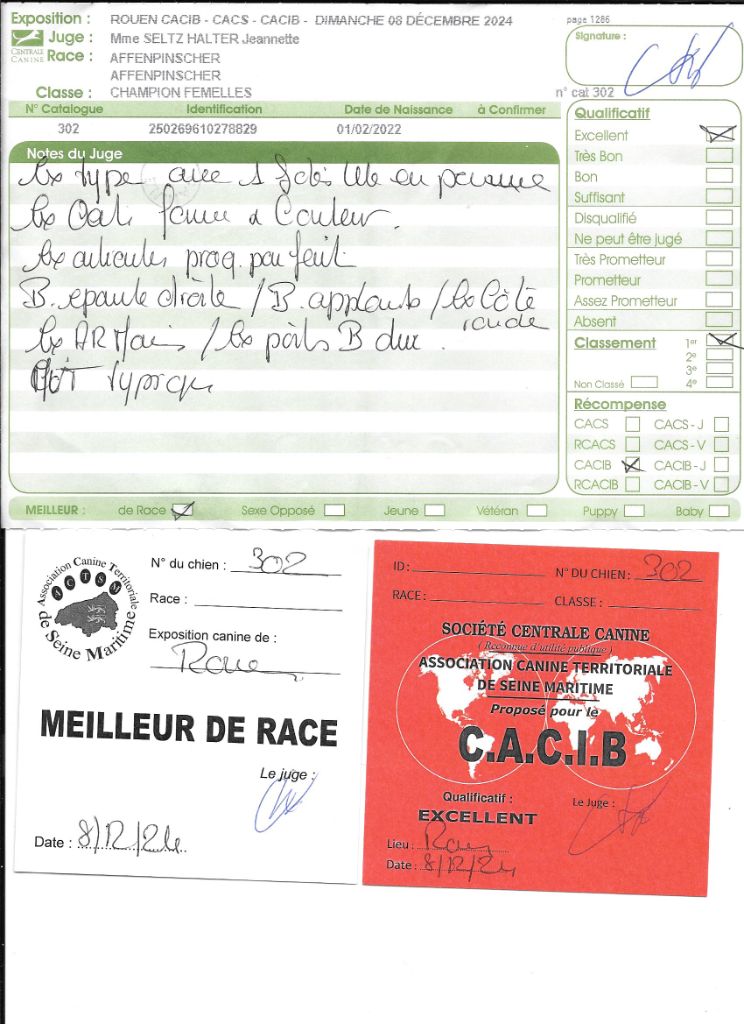 Exposition : ROUEN CACIB - CACS - CACIB - DIMANCHE 08 DÉCEMBRE 2024
page 1286
CENTRALE CANINE
Juge : Mme SELTZ HALTER Jeannette
Race : AFFENPINSCHER
AFFENPINSCHER
Classe : CHAMPION FEMELLES
n° cat 302
Signature :
N° Catalogue Identification Date de Naissance à Confirmer
302 250269610278829 01/02/2022
Notes du Juge
Ex type avec 1 tête
Ex forme & Couleur.
Ex parfait
B. epaule droite / B. applombs / Ex Côté
ronde
Ex AR Mains / Ex poils B dur.
typique
Qualificatif
Excellent
Très Bon
Bon
Suffisant
Disqualifié
Ne peut être jugé
Très Prometteur
Prometteur
Assez Prometteur
Absent
Classement 1er
2e
3e
Non Classé 4e
Récompense
CACS CACS - J
RCACS CACS - V
CACIB CACIB - J
RCACIB CACIB - V
MEILLEUR : de Race Sexe Opposé Jeune Vétéran Puppy Baby
Association Canine Territoriale
A C T S M
de Seine Maritime
N° du chien : 302
Race :
Exposition canine de :
Rouen
MEILLEUR DE RACE
Le juge :
Date : 8/12/24
ID :
N° DU CHIEN : 302
RACE : CLASSE :
SOCIÉTÉ CENTRALE CANINE
( Reconnue d'utilité publique )
ASSOCIATION CANINE TERRITORIALE
DE SEINE MARITIME
Proposé pour le
C.A.C.I.B
Qualificatif :
EXCELLENT
Le Juge :
Lieu : Rouen
Date : 8/12/24